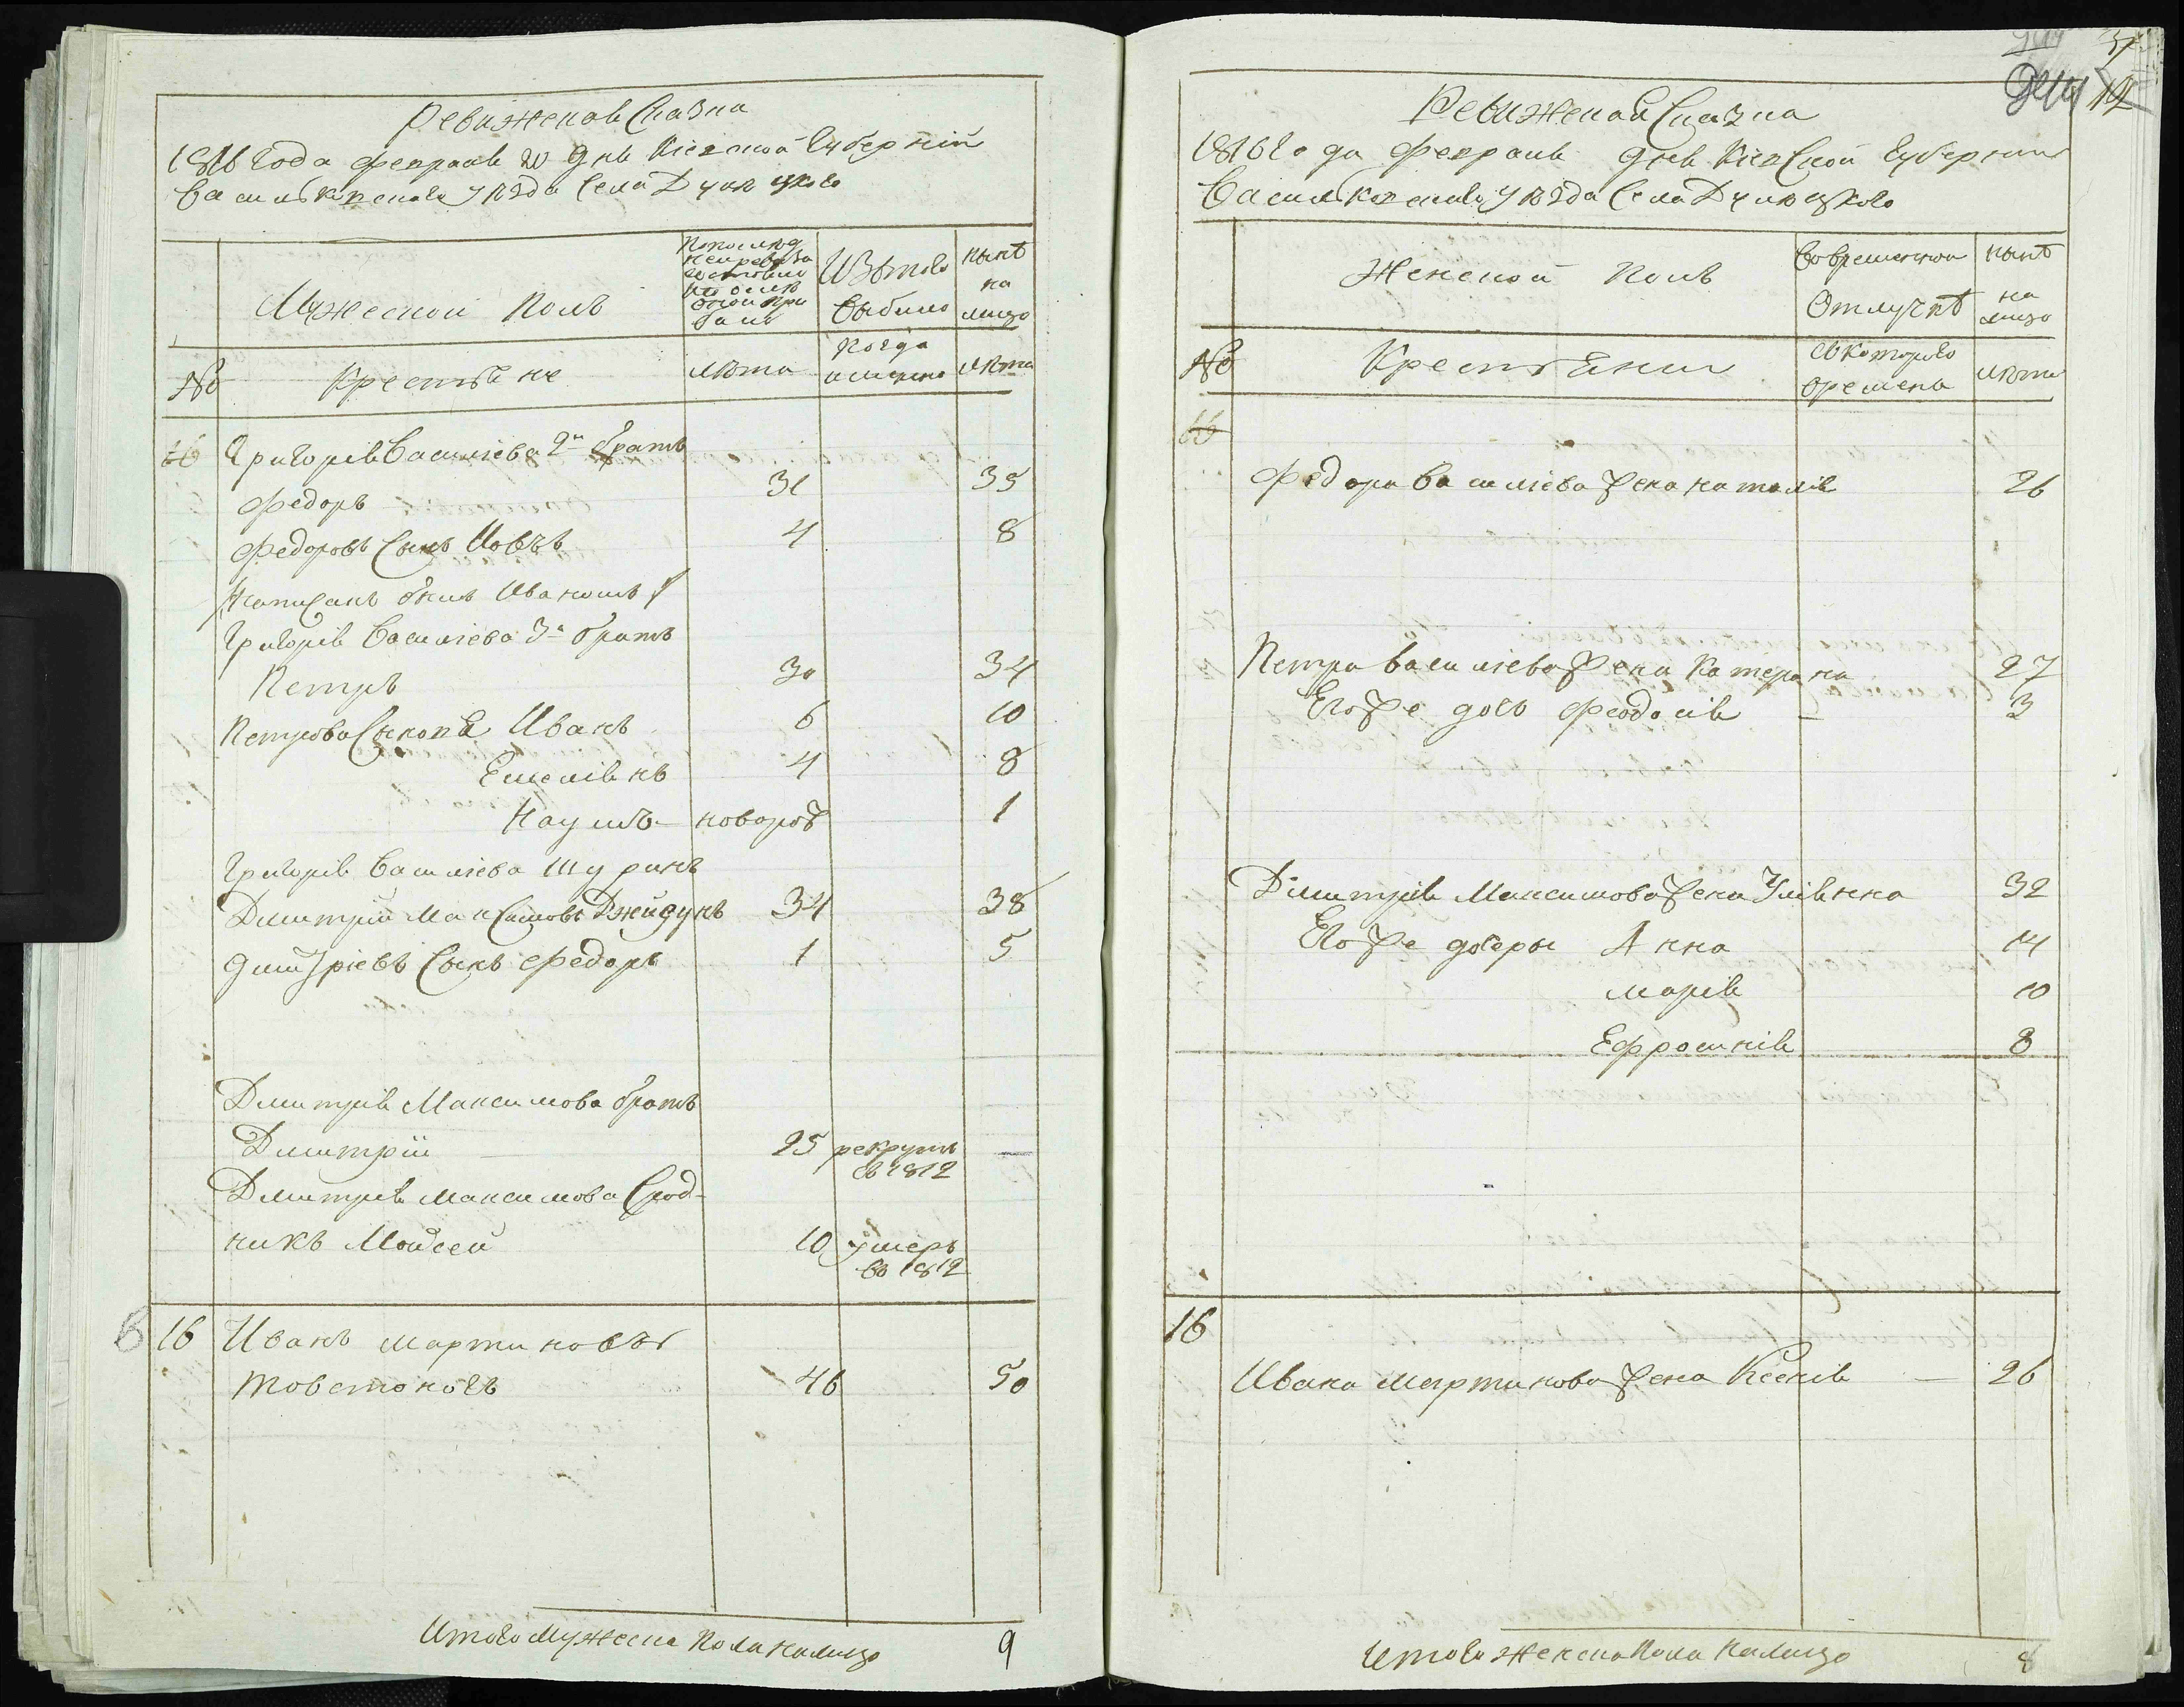 Ревижская Сказка
1816 года февраля 20 дня Киевской губерній
Васильковского уезда Села
Мужеской Полъ
Изъ того
выбыло
нынѣ
на
лицо
№
Крестьяне
лѣта
Когда
именно
лѣта
16
Григорія Василіева 2й братъ
Федоръ 31 35
Федоровъ Сынъ Иовъ 4 8
Написанъ Иваномъ
Григорія Василіева 3й братъ
Петръ 30 34
Петрова Сыновя Иванъ 6 10
Емеліянъ 4 8
Наумъ новорож 1
Григорія Василіева Шуринъ
Дмитрій Максимовъ 34 38
Дмитріевъ Сынъ Федоръ 1 5
Дмитрія Максимова братъ
Дмитрій 25 рекрутъ —
въ 1812
Дмитрія Максимова Срод-
никъ Мойсей 10 умеръ
въ 1812
6 16 Иванъ Мартиновъ
Товстоногъ 46 50
Итого Мужеска Пола налицо 9
Ревижская Сказка
1816 года февраля дня Киевской Губернии
Васильковского уезда Села
Женской Полъ
Во временной
Отлучкѣ
нынѣ
на
лицо
№
Крестьянки
Съ которого
времены
лѣта
16
Федора Василіева жена Наталія 26
Петра Василіева жена Катерина 27
Егоже дочь Феодосія — 3
Дмитрія Максимова жена Уліянна 32
Егоже дочеры Анна 14
марія 10
Ефросинія 8
16
Ивана Мартинова жена Ксенія — 26
Итого женска Пола налицо 8